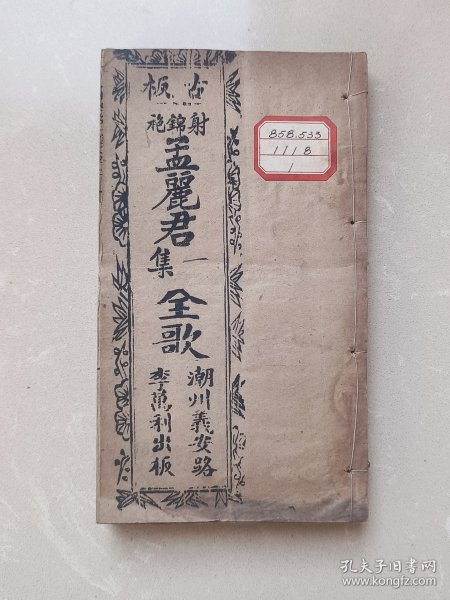 古板
射錦袍
孟麗君
一集
全歌
潮州義安路
李萬利出板
858.533
1118
1
孔夫子旧书网
www.kongfz.com